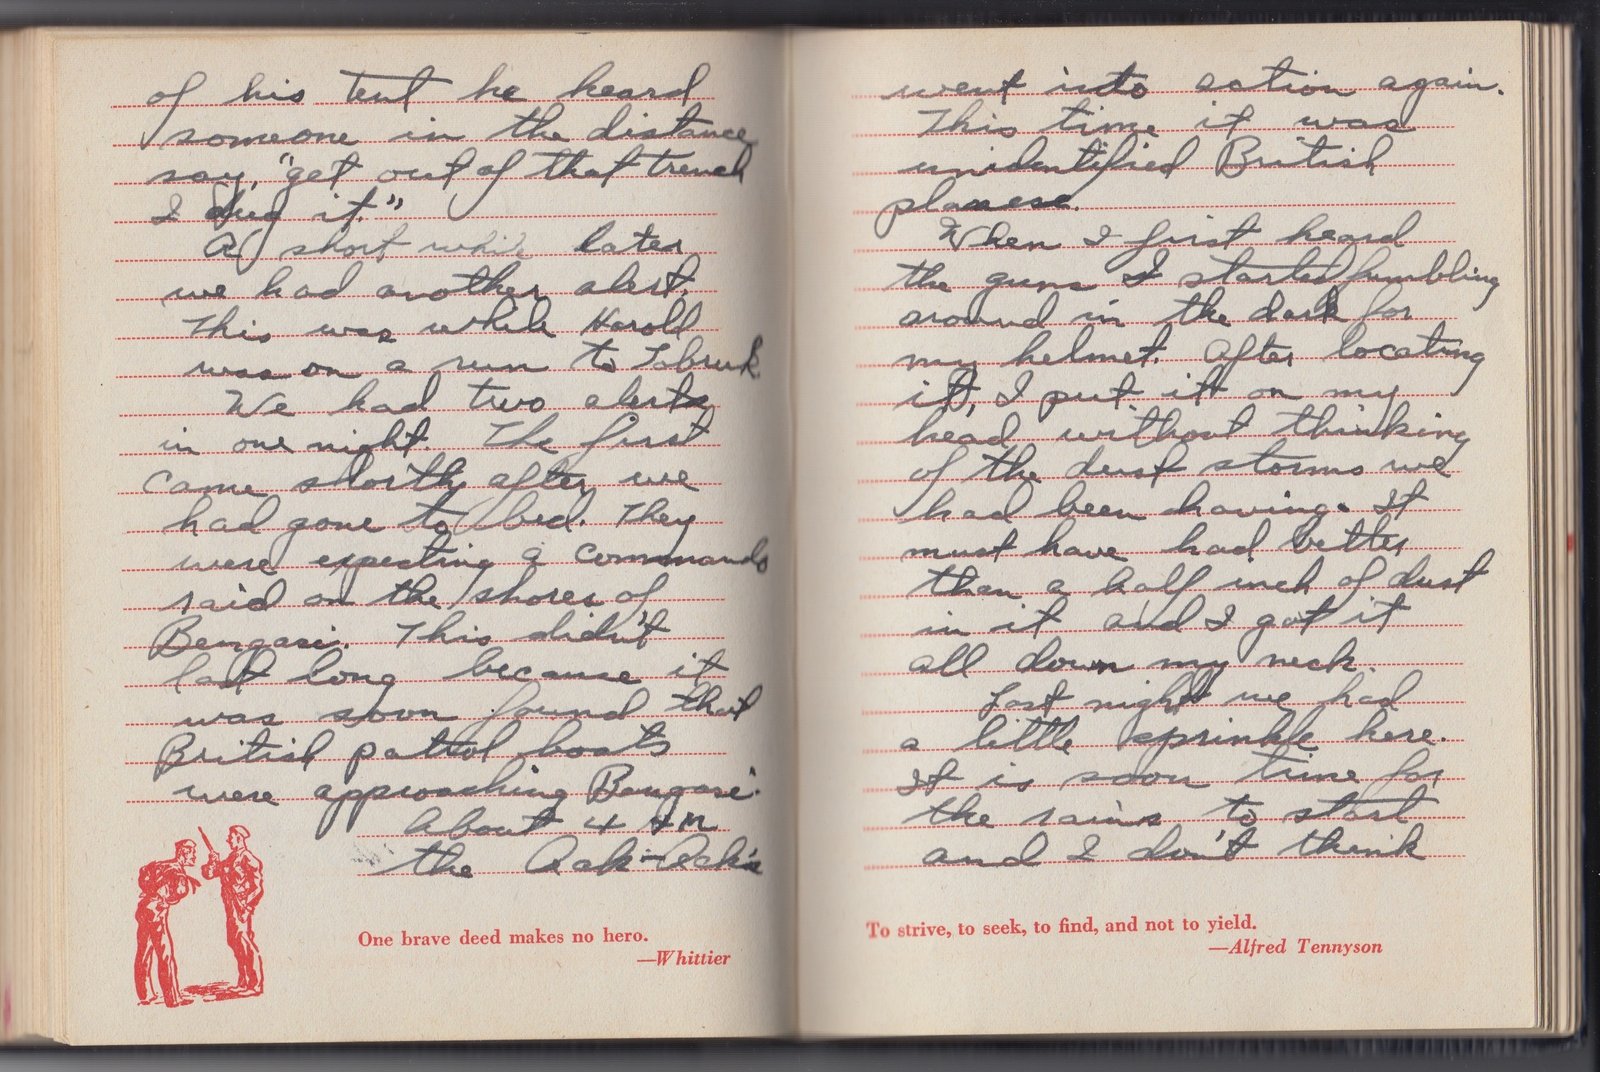 of his tent he heard
someone in the distance
say, "get out of that trench
I dug it."
A short while later
we had another alert.
This was while Harold
was on a run to Tobruk.
We had two alerts
in one night. The first
came shortly after we
had gone to bed. They
were expecting a commando
raid on the shores of
Bengasi. This didn't
last long because it
was soon found that
British patrol boats
were approaching Bengasi.
About 4 AM
the Ack-Ack's
One brave deed makes no hero.
—Whittier
went into action again.
This time it was
unidentified British
planes.
When I first heard
the guns I started fumbling
around in the dark for
my helmet. After locating
it, I put it on my
head without thinking
of the dust storms we
had been having. It
must have had better
than a half inch of dust
in it and I got it
all down my neck.
Last night we had
a little sprinkle here.
It is soon time for
the rains to start
and I don't think
To strive, to seek, to find, and not to yield.
—Alfred Tennyson